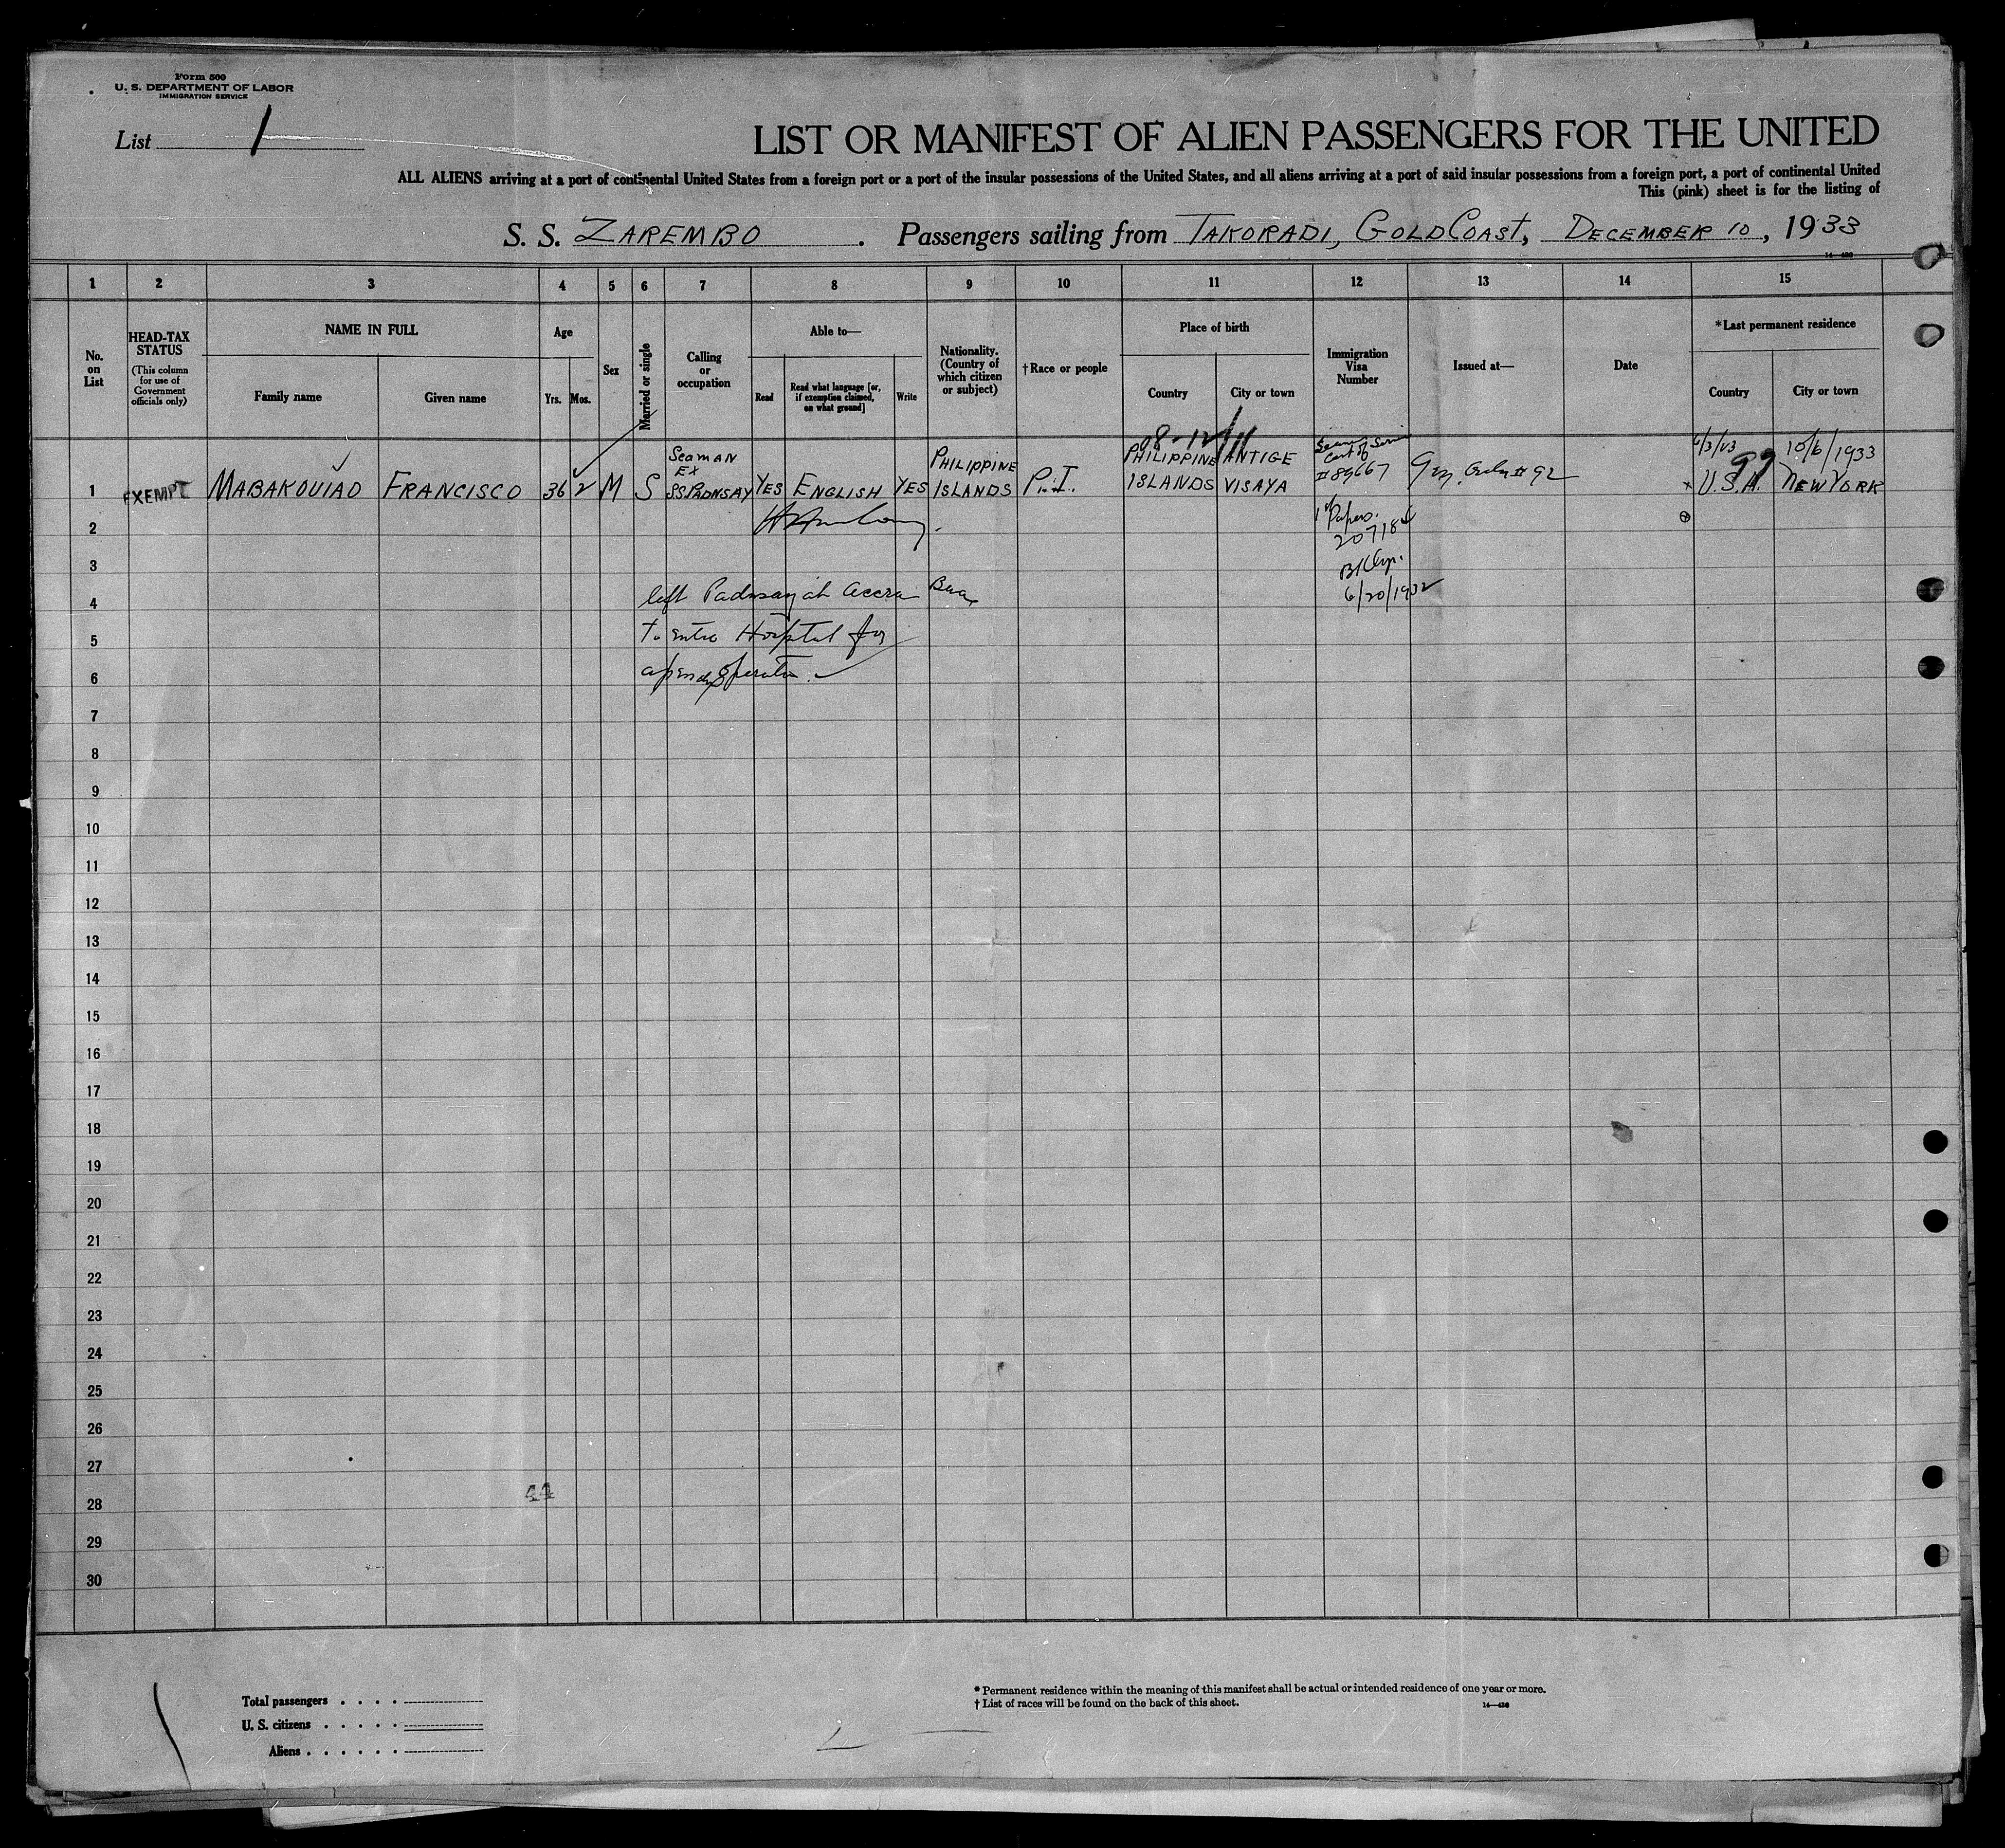 Form 500
U. S. DEPARTMENT OF LABOR
IMMIGRATION SERVICE
List 1
LIST OR MANIFEST OF ALIEN PASSENGERS FOR THE UNITED
ALL ALIENS arriving at a port of continental United States from a foreign port or a port of the insular possessions of the United States, and all aliens arriving at a port of said insular possessions from a foreign port, a port of continental United
This (pink) sheet is for the listing of
S. S. ZAREMBO . Passengers sailing from TAKORADI, GOLD COAST, DECEMBER 10, 1933
14—430
1 2 3 4 5 6 7 8 9 10 11 12 13 14 15
No. on List
HEAD-TAX STATUS
(This column for use of Government officials only)
NAME IN FULL
Family name
Given name
Age
Yrs. Mos.
Sex
Married or single
Calling or occupation
Able to—
Read
Read what language [or, if exemption claimed, on what ground]
Write
Nationality. (Country of which citizen or subject)
†Race or people
Place of birth
Country
City or town
Immigration Visa Number
Issued at—
Date
*Last permanent residence
Country
City or town
1 EXEMPT MABAKOUIAO FRANCISCO 36 2 M S
SEAMAN
EX
SS PADNSAY
YES ENGLISH YES
PHILIPPINE
ISLANDS
P.I.
PHILIPPINE
ISLANDS
ANTIGE
VISAYA
Cert of
#89667
#92
10/6/1933
U.S.A. NEW YORK
2
1st Papers.
207184
3
4 left Padnsay at Accra
6/20/1932
5 to enter Hospital for
6 operation.
7
8
9
10
11
12
13
14
15
16
17
18
19
20
21
22
23
24
25
26
27
44
28
29
30
Total passengers . . . .
U. S. citizens . . . . .
Aliens . . . . . .
*Permanent residence within the meaning of this manifest shall be actual or intended residence of one year or more.
†List of races will be found on the back of this sheet.
14—430